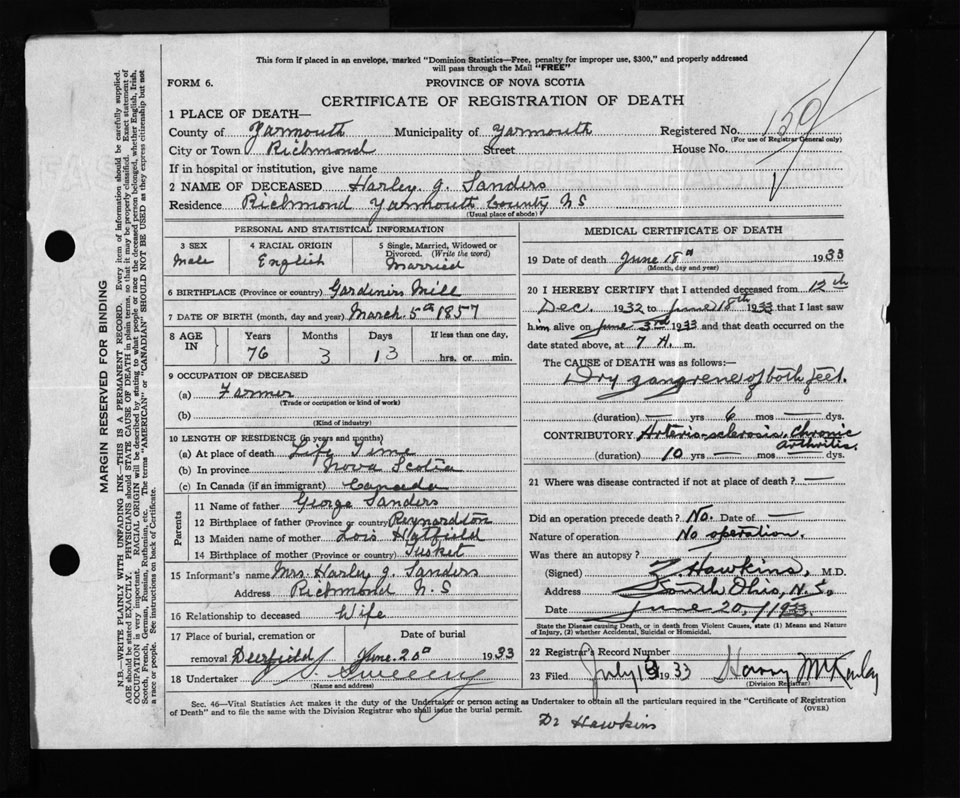 This form if placed in an envelope, marked "Dominion Statistics—Free, penalty for improper use, $300," and properly addressed
will pass through the Mail "FREE"
FORM 6.
PROVINCE OF NOVA SCOTIA
CERTIFICATE OF REGISTRATION OF DEATH
159
1 PLACE OF DEATH—
County of Yarmouth Municipality of Yarmouth Registered No.
(For use of Registrar General only)
City or Town Richmond Street House No.
If in hospital or institution, give name
2 NAME OF DECEASED Harley J. Sanders
Residence Richmond Yarmouth County N S
(Usual place of abode)
PERSONAL AND STATISTICAL INFORMATION
3 SEX 4 RACIAL ORIGIN 5 Single, Married, Widowed or Divorced. (Write the word)
Male English Married
6 BIRTHPLACE (Province or country) Gardiners Mill
7 DATE OF BIRTH (month, day and year) March 5th 1857
8 AGE IN Years Months Days If less than one day,
76 3 13 hrs. or min.
9 OCCUPATION OF DECEASED
(a) Farmer
(Trade or occupation or kind of work)
(b)
(Kind of industry)
10 LENGTH OF RESIDENCE (in years and months)
(a) At place of death Life Time
(b) In province Nova Scotia
(c) In Canada (if an immigrant) Canada
Parents
11 Name of father George Sanders
12 Birthplace of father (Province or country) Raynardton
13 Maiden name of mother Lois Hatfield
14 Birthplace of mother (Province or country) Tusket
15 Informant's name Mrs Harley J. Sanders
Address Richmond N. S
16 Relationship to deceased Wife
17 Place of burial, cremation or Date of burial
removal Deerfield June 20th 1933
18 Undertaker Sweeny
(Name and address)
MEDICAL CERTIFICATE OF DEATH
19 Date of death June 18th 1933
(Month, day and year)
20 I HEREBY CERTIFY that I attended deceased from 12th
Dec. 1932 to June 18th 1933 that I last saw
him alive on June 3rd 1933 and that death occurred on
date stated above, at 7 A. m.
The CAUSE OF DEATH was as follows:—
Dry gangrene of both feet.
(duration) — yrs 6 mos — dys.
CONTRIBUTORY. Arterio-sclerosis. Chronic
arthritis.
(duration) 10 yrs — mos — dys.
21 Where was disease contracted if not at place of death? —
Did an operation precede death? No. Date of —
Nature of operation No operation.
Was there an autopsy?
(Signed) Z. Hawkins, M.D.
Address South Ohio, N.S.
Date June 20, 1933
State the Disease causing Death, or in death from Violent Causes, state (1) Means and Nature
of Injury, (2) whether Accidental, Suicidal or Homicidal.
22 Registrar's Record Number
23 Filed July 1933 Harry McKinley
(Division Registrar)
Sec. 46—Vital Statistics Act makes it the duty of the Undertaker or person acting as Undertaker to obtain all the particulars required in the "Certificate of Registration
of Death" and to file the same with the Division Registrar who shall issue the burial permit.
(OVER)
Dr Hawkins
MARGIN RESERVED FOR BINDING
N.B.—WRITE PLAINLY WITH UNFADING INK—THIS IS A PERMANENT RECORD. Every item of information should be carefully supplied.
AGE should be stated EXACTLY. PHYSICIANS should STATE CAUSE OF DEATH in plain terms, so that it may be properly classified. Exact statement of
OCCUPATION is very important. RACIAL ORIGIN will be described by stating to what people or race the deceased person belonged, whether English, Irish,
Scotch, French, German, Russian, Ruthenian, etc. The terms "AMERICAN" or "CANADIAN" SHOULD NOT BE USED as they express citizenship but not
a race or people. See instructions on back of Certificate.